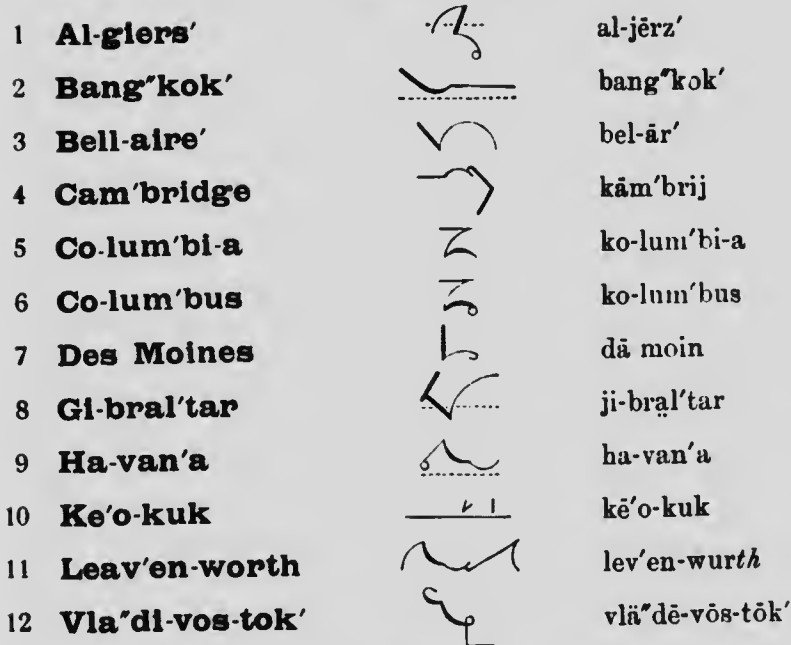 1 Al-giers′ al-jērz′
2 Bang″kok′ bang″kok′
3 Bell-aire′ bel-ār′
4 Cam′bridge kām′brij
5 Co-lum′bi-a ko-lum′bi-a
6 Co-lum′bus ko-lum′bus
7 Des Moines dā moin
8 Gi-bral′tar ji-bra̤l′tar
9 Ha-van′a ha-van′a
10 Ke′o-kuk kē′o-kuk
11 Leav′en-worth lev′en-wurth
12 Vla″di-vos-tok′ vlä″dē-vōs-tōk′